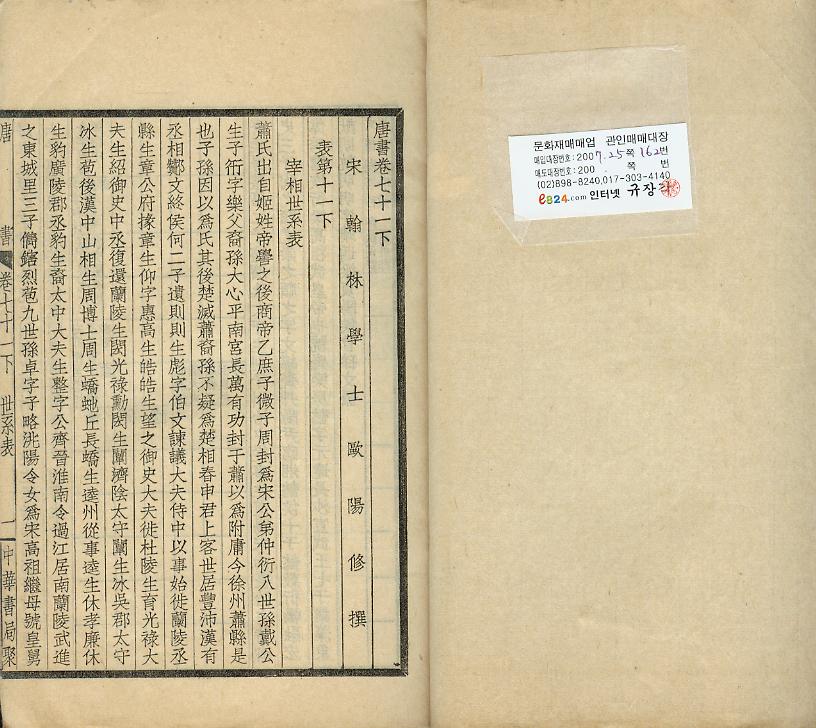 문화재매매업 관인매매대장
매입대장번호 : 2007. 25쪽 162번
매도대장번호 : 200 . 쪽 번
(02)898-8240, 017-303-4140
e824.com 인터넷 규장각
唐書卷七十一下
宋翰林學士歐陽修撰
表第十一下
宰相世系表
蕭氏出自姬姓帝嚳之後商帝乙庶子微子周封爲宋公弟仲衍八世孫戴公
生子衎字樂父裔孫大心平南宮長萬有功封于蕭以爲附庸今徐州蕭縣是
也子孫因以爲氏其後楚滅蕭裔孫不疑爲楚相春申君上客世居豐沛漢有
丞相酇文終侯何二子遺則則生彪字伯文諫議大夫侍中以事始徙蘭陵丞
縣生章公府掾章生仰字惠高生皓皓生望之御史大夫徙杜陵生育光祿大
夫生紹御史中丞復還蘭陵生閎光祿勳閎生闡濟陰太守闡生冰吳郡太守
冰生苞後漢中山相生周博士周生蟜虵丘長蟜生逵州從事逵生休孝廉休
生豹廣陵郡丞豹生裔太中大夫生整字公齊晉淮南令過江居南蘭陵武進
之東城里三子儁鎋烈苞九世孫卓字子略洮陽令女爲宋高祖繼母號皇舅
唐書 卷七十一下 世系表 一 中華書局聚